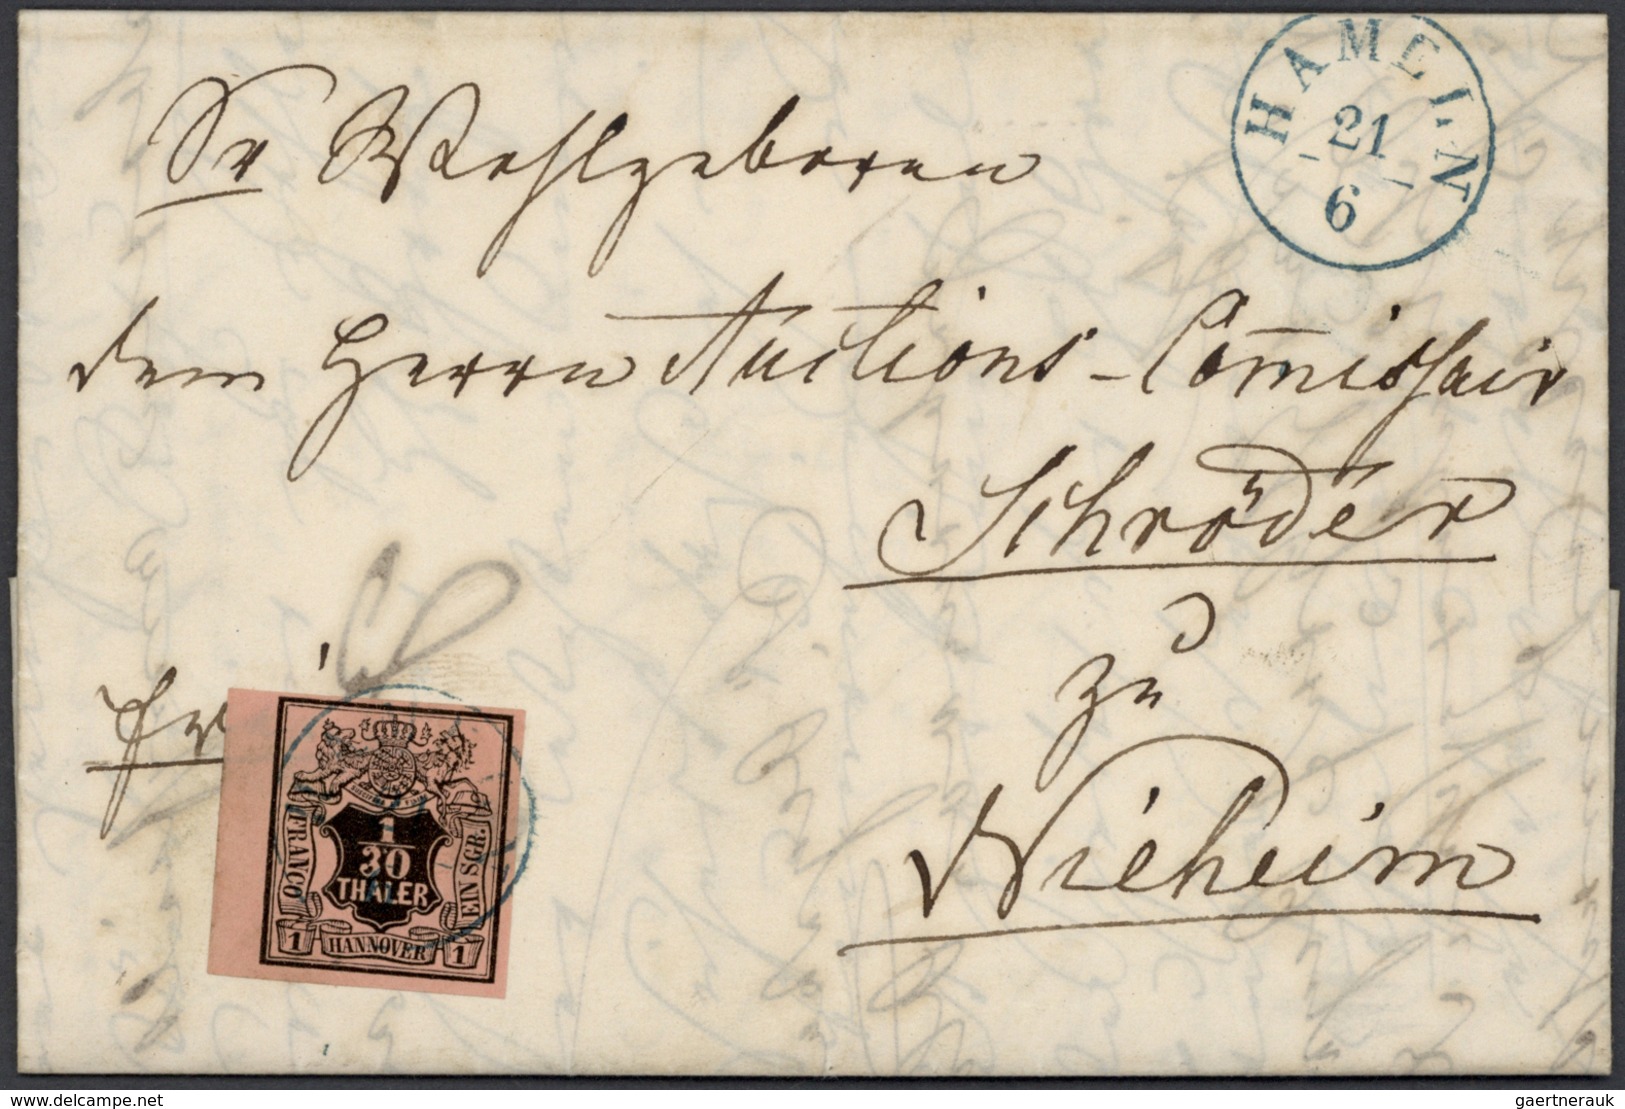 HAMELN
21
6
Sr Wohlgeboren
dem Herrn Auctions-Com̅issair
Schröder
zu
Nieheim
fr
FRANCO
1
30
THALER
EIN SGR.
1
HANNOVER
1
delcampe.net
gaertnerauk